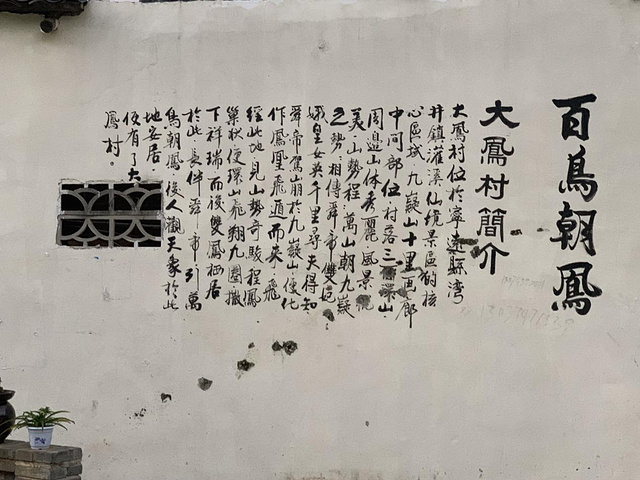 百鳥朝鳳
大鳳村簡介
大鳳村位於寧遠縣灣
井鎮灌溪仙境景區的核
心區域九嶷山十里画廊
中间部位村落三面深山
周邊山体秀麗風景
美山勢程萬山朝九嶷
之勢相傳舜帝雙妃
娥皇女英千里尋夫得知
舜帝駕崩於九嶷山便化
作鳳凰飛遁而来飛
經此地見山勢奇駿程鳳
巢狀便環山飛翔九圈撒
下祥瑞而後雙鳳栖居
於此長伴舜帝引萬
鳥朝鳳後人觀天象於此
地安居
便有了大
鳳村。